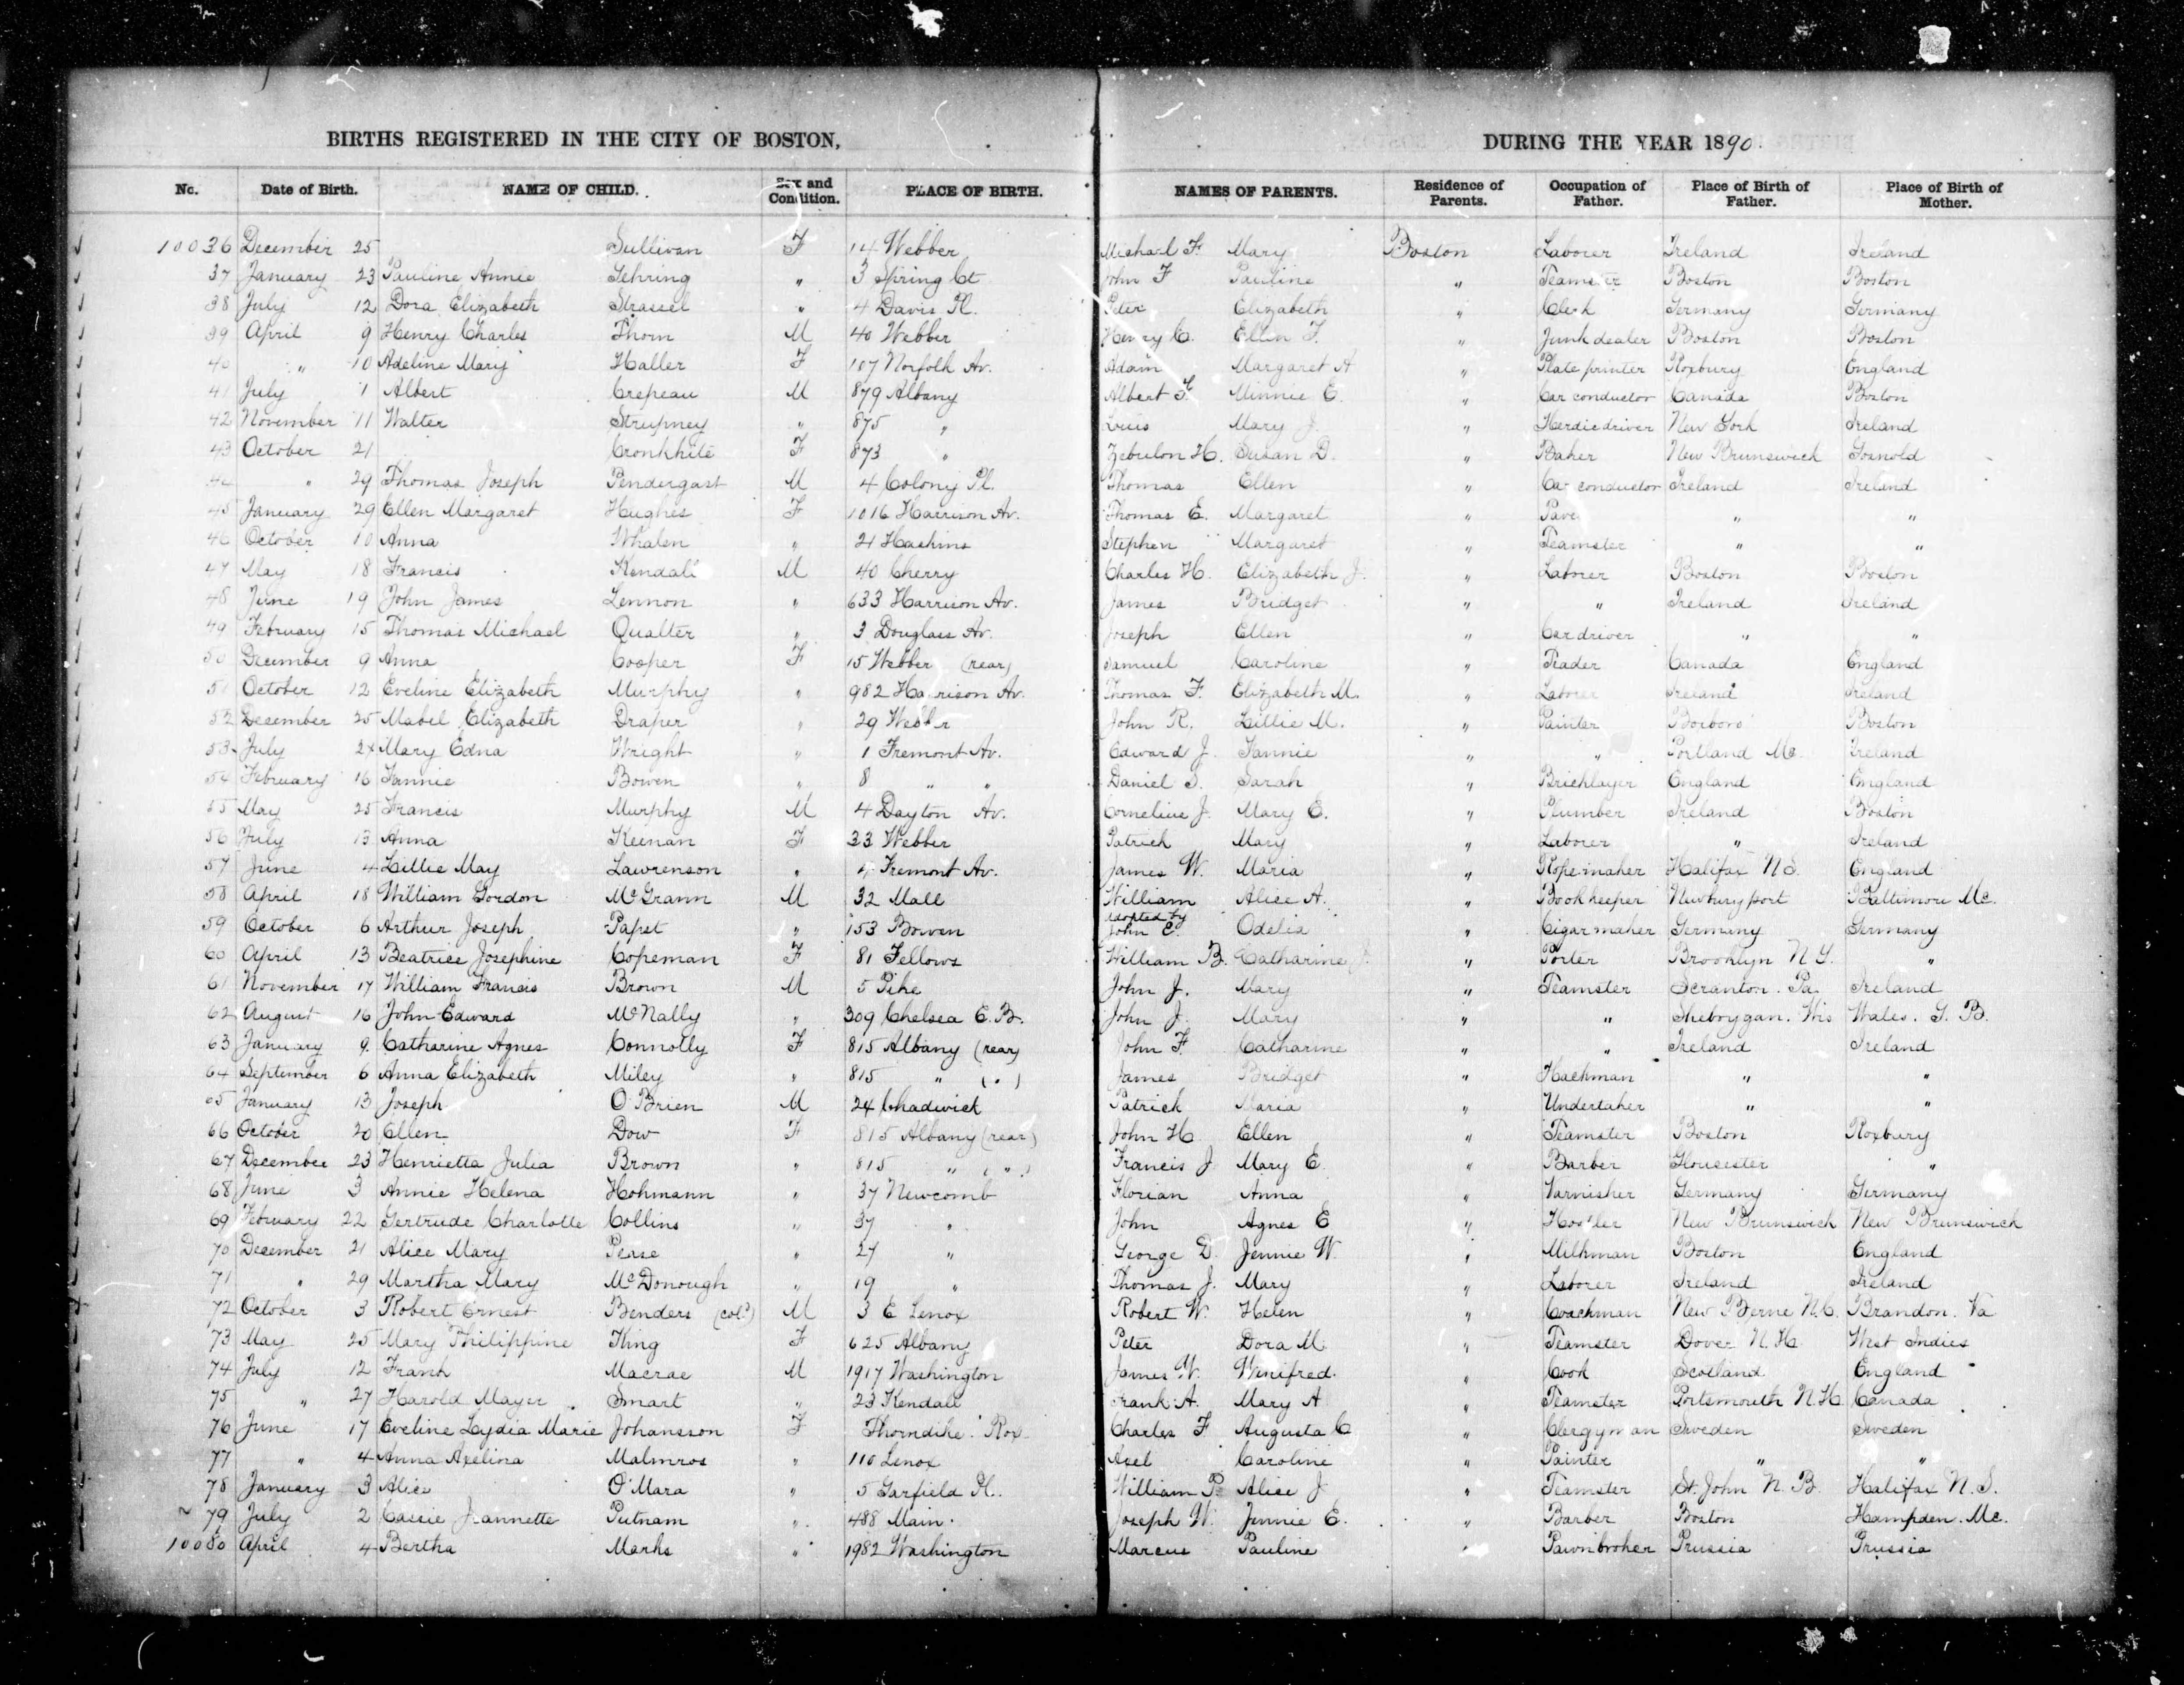 BIRTHS REGISTERED IN THE CITY OF BOSTON, DURING THE YEAR 1890.
No. Date of Birth. NAME OF CHILD. Sex and Condition. PLACE OF BIRTH. NAMES OF PARENTS. Residence of Parents. Occupation of Father. Place of Birth of Father. Place of Birth of Mother.
10036 December 25 Sullivan F 14 Webber Michael F. Mary Boston Laborer Ireland Ireland
37 January 23 Pauline Annie Gehring " 3 Spring Ct John F Pauline " Teamster Boston Boston
38 July 12 Dora Elizabeth Strassel " 4 Davis Pl. Peter Elizabeth " Clerk Germany Germany
39 April 9 Henry Charles Thorn M 40 Webber Henry C. Ellen F. " Junk dealer Boston Boston
40 " 10 Adeline Mary Haller F 107 Norfolk Av. Adam Margaret A " Plate printer Roxbury England
41 July 1 Albert Crepeau M 879 Albany Albert F. Minnie E. " Car conductor Canada Boston
42 November 11 Walter Strupney " 875 " Louis Mary J. " Herdic driver New York Ireland
43 October 21 Cronkhite F 873 " Zebulon H. Susan D. " Baker New Brunswick Gosnold
44 " 29 Thomas Joseph Pendergast M 4 Colony Pl. Thomas Ellen " Car conductor Ireland Ireland
45 January 29 Ellen Margaret Hughes F 1016 Harrison Av. Thomas E. Margaret " Paver " "
46 October 10 Anna Whalen " 21 Haskins Stephen Margaret " Teamster " "
47 May 18 Francis Kendall M 40 Cherry Charles H. Elizabeth J. " Laborer Boston Boston
48 June 19 John James Lennon " 633 Harrison Av. James Bridget " " Ireland Ireland
49 February 15 Thomas Michael Qualter " 3 Douglass Av. Joseph Ellen " Car driver " "
50 December 9 Anna Cooper F 15 Webber (rear) Samuel Caroline " Trader Canada England
51 October 12 Eveline Elizabeth Murphy " 982 Harrison Av. Thomas F. Elizabeth M. " Laborer Ireland Ireland
52 December 25 Mabel Elizabeth Draper " 29 Webber John R. Lillie M. " Painter Boxboro Boston
53 July 24 Mary Edna Wright " 1 Fremont Av. Edward J. Fannie " " Portland Me. Ireland
54 February 16 Fannie Bowen " 8 " " Daniel S. Sarah " Bricklayer England England
55 May 25 Francis Murphy M 4 Dayton Av. Cornelius J. Mary E. " Plumber Ireland Boston
56 July 13 Anna Keenan F 33 Webber Patrick Mary " Laborer " Ireland
57 June 4 Lillie May Lawrenson " 4 Fremont Av. James W. Maria " Rope maker Halifax N.S. England
58 April 18 William Gordon McGrann M 32 Mall William Alice A. " Book keeper Newburyport Baltimore Me.
59 October 6 Arthur Joseph Papst " 153 Bowen adopted by John E. Odelia " Cigar maker Germany Germany
60 April 13 Beatrice Josephine Copeman F 81 Fellows William B. Catharine J. " Porter Brooklyn N.Y. "
61 November 17 William Francis Brown M 5 Pike John J. Mary " Teamster Scranton. Pa. Ireland
62 August 16 John Edward McNally " 309 Chelsea E.B. John J. Mary " " Sheboygan. Wis Wales. G.B.
63 January 9 Catharine Agnes Connolly F 815 Albany (rear) John F. Catharine " " Ireland Ireland
64 September 6 Anna Elizabeth Miley " 815 " (") James Bridget " Hackman " "
65 January 13 Joseph O'Brien M 24 Chadwick Patrick Maria " Undertaker " "
66 October 20 Ellen Dow F 815 Albany (rear) John H. Ellen " Teamster Boston Roxbury
67 December 23 Henrietta Julia Brown " 815 " (") Francis J Mary E. " Barber Gloucester "
68 June 3 Annie Helena Hohmann " 37 Newcomb Florian Anna " Varnisher Germany Germany
69 February 22 Gertrude Charlotte Collins " 37 " John Agnes E " Hostler New Brunswick New Brunswick
70 December 21 Alice Mary Pease " 27 " George D. Jennie W. " Milkman Boston England
71 " 29 Martha Mary McDonough " 19 " Thomas J. Mary " Laborer Ireland Ireland
72 October 3 Robert Ernest Benders (cold) M 3 E Lenox Robert W. Helen " Coachman New Berne N.C. Brandon. Va
73 May 25 Mary Philippine King F 625 Albany Peter Dora M. " Teamster Dover N.H. West Indies
74 July 12 Frank Macrae M 1917 Washington James W. Winifred. " Cook Scotland England
75 " 27 Harold Mayer Smart " 23 Kendall Frank A. Mary A " Teamster Portsmouth N.H. Canada
76 June 17 Eveline Lydia Marie Johansson F Thorndike. Rox Charles F Augusta C " Clergyman Sweden Sweden
77 " 4 Anna Axelina Malmros " 110 Lenox Axel Caroline " Painter " "
78 January 3 Alice O'Mara " 5 Garfield Pl. William P. Alice J " Teamster St. John N.B. Halifax N.S.
79 July 2 Cassie Jeannette Putnam " 488 Main. Joseph W. Jennie E. " Barber Boston Hampden. Me.
10080 April 4 Bertha Marks " 1982 Washington Marcus Pauline " Pawnbroker Prussia Prussia